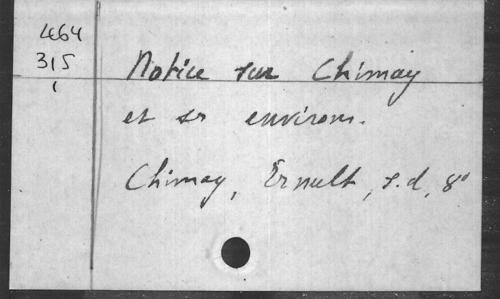 464
315
1
Notice sur Chimay
et ses environs.
Chimay, Ernult, s.d, 8°